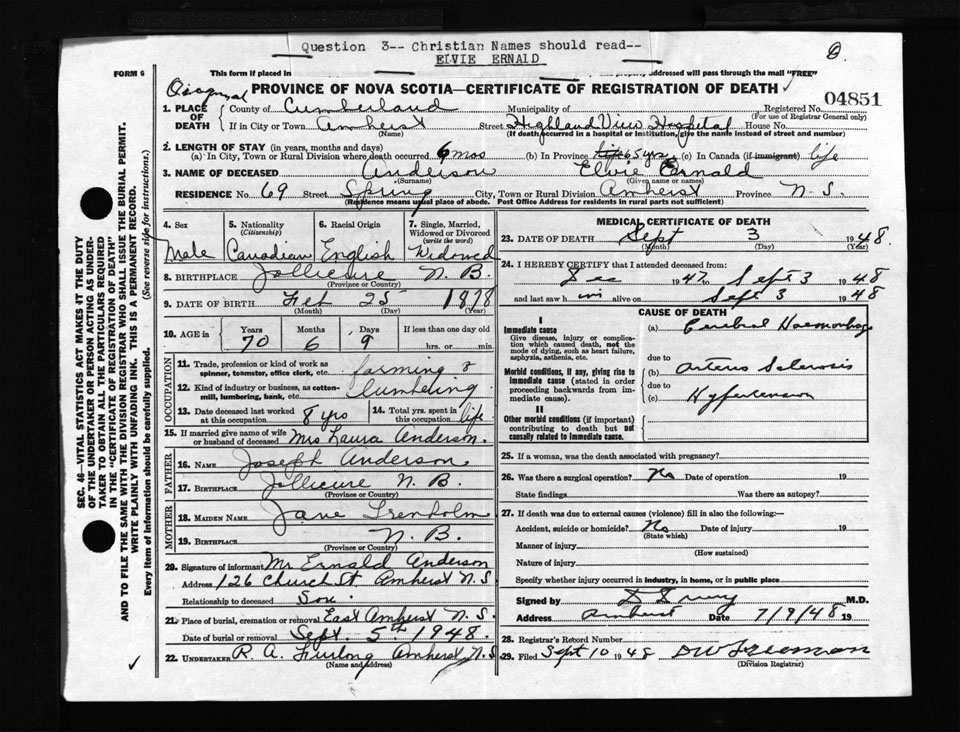 Question 3-- Christian Names should read--
ELVIE ERNALD
FORM 6
This form if placed in
addressed will pass through the mail "FREE"
PROVINCE OF NOVA SCOTIA—CERTIFICATE OF REGISTRATION OF DEATH
04851
1. PLACE OF DEATH
County of Cumberland Municipality of Registered No.
(For use of Registrar General only)
If in City or Town Amherst Street Highland View Hospital House No.
(Name) (If death occurred in a hospital or institution, give the name instead of street and number)
2. LENGTH OF STAY (in years, months and days)
(a) In City, Town or Rural Division where death occurred 6 mos (b) In Province 65 yrs (c) In Canada (if immigrant) life
3. NAME OF DECEASED Anderson Elvie Ernald
(Surname) (Given name or names)
RESIDENCE No. 69 Street Spring City, Town or Rural Division Amherst Province N.S.
(Residence means usual place of abode. Post Office Address for residents in rural parts not sufficient)
4. Sex Male
5. Nationality (Citizenship) Canadian
6. Racial Origin English
7. Single, Married, Widowed or Divorced (write the word) Widowed
8. BIRTHPLACE Jollicure N.B.
(Province or Country)
9. DATE OF BIRTH Feb 25 1878
(Month) (Day) (Year)
10. AGE in Years 70 Months 6 Days 9 If less than one day old hrs. or min.
OCCUPATION
11. Trade, profession or kind of work as spinner, teamster, office clerk, etc. farming &
12. Kind of industry or business, as cotton-mill, lumbering, bank, etc. lumbering
13. Date deceased last worked at this occupation 8 yrs
14. Total yrs. spent in this occupation life
15. If married give name of wife or husband of deceased Mrs Laura Anderson.
FATHER
16. NAME Joseph Anderson
17. BIRTHPLACE Jollicure N.B.
(Province or Country)
MOTHER
18. MAIDEN NAME Jane Trenholm
19. BIRTHPLACE N.B.
(Province or Country)
20. Signature of informant Mr Ernald Anderson
Address 126 Church St. Amherst N.S
Relationship to deceased Son.
21. Place of burial, cremation or removal East Amherst N.S.
Date of burial or removal Sept. 5th 1948.
22. UNDERTAKER R. A. Furlong Amherst N.S
(Name and address)
MEDICAL CERTIFICATE OF DEATH
23. DATE OF DEATH Sept 3 1948.
(Month) (Day)
24. I HEREBY CERTIFY that I attended deceased from:
Dec 1947 to Sept 3 1948
and last saw him alive on Sept 3 1948
CAUSE OF DEATH
I
Immediate cause
Give disease, injury or complication which caused death, not the mode of dying, such as heart failure, asphyxia, asthenia, etc.
Morbid conditions, if any, giving rise to immediate cause (stated in order proceeding backwards from immediate cause).
II
Other morbid conditions (if important) contributing to death but not causally related to immediate cause.
(a) Cerebral Haemorrhage
due to
(b) Arterio Sclerosis
due to
(c) Hypertension
25. If a woman, was the death associated with pregnancy?
26. Was there a surgical operation? No Date of operation 19
State findings Was there an autopsy?
27. If death was due to external causes (violence) fill in also the following:—
Accident, suicide or homicide? No Date of injury 19
(State which)
Manner of injury
(How sustained)
Nature of injury
Specify whether injury occurred in industry, in home, or in public place
Signed by M.D.
Address Amherst Date 7/9/48 19
28. Registrar's Record Number
29. Filed Sept 10 1948 D W Freeman
(Division Registrar)
SEC. 46—VITAL STATISTICS ACT MAKES IT THE DUTY
OF THE UNDERTAKER OR PERSON ACTING AS UNDER-
TAKER TO OBTAIN ALL THE PARTICULARS REQUIRED
IN THE "CERTIFICATE OF REGISTRATION OF DEATH"
AND TO FILE THE SAME WITH THE DIVISION REGISTRAR WHO SHALL ISSUE THE BURIAL PERMIT.
WRITE PLAINLY WITH UNFADING INK. THIS IS A PERMANENT RECORD.
Every item of information should be carefully supplied. (See reverse side for instructions.)